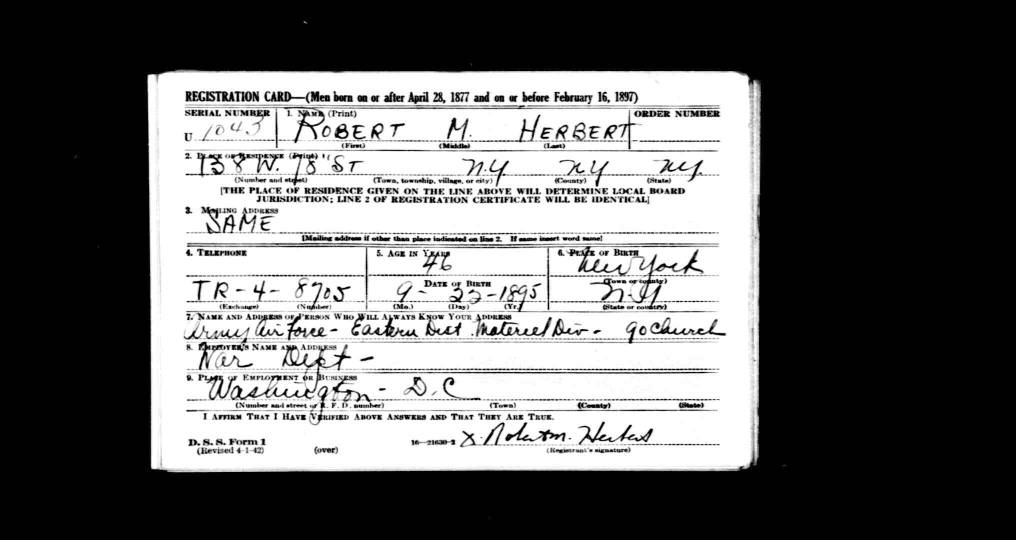 REGISTRATION CARD—(Men born on or after April 28, 1877 and on or before February 16, 1897)
SERIAL NUMBER 1. NAME (Print) ORDER NUMBER
U 1043 ROBERT M. HERBERT
(First) (Middle) (Last)
2. PLACE OF RESIDENCE (Print)
138 W. 78 ST N.Y NY NY.
(Number and street) (Town, township, village, or city) (County) (State)
[THE PLACE OF RESIDENCE GIVEN ON THE LINE ABOVE WILL DETERMINE LOCAL BOARD
JURISDICTION; LINE 2 OF REGISTRATION CERTIFICATE WILL BE IDENTICAL]
3. MAILING ADDRESS
SAME
[Mailing address if other than place indicated on line 2. If same insert word same]
4. TELEPHONE 5. AGE IN YEARS 6. PLACE OF BIRTH
46 New York
DATE OF BIRTH (Town or county)
TR-4-8705 9-22-1895 N.Y
(Exchange) (Number) (Mo.) (Day) (Yr.) (State or country)
7. NAME AND ADDRESS OF PERSON WHO WILL ALWAYS KNOW YOUR ADDRESS
Army Air Force - Eastern Dist. Materiel Div - 90 Church
8. EMPLOYER'S NAME AND ADDRESS
War Dept -
9. PLACE OF EMPLOYMENT OR BUSINESS
Washington - D.C
(Number and street or R. F. D. number) (Town) (County) (State)
I AFFIRM THAT I HAVE VERIFIED ABOVE ANSWERS AND THAT THEY ARE TRUE.
D. S. S. Form 1 16—21630-2 X Robert M. Herbert
(Revised 4-1-42) (over) (Registrant's signature)